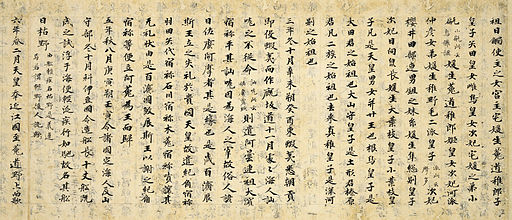 祖日觸使主之女宮主宅媛生菟道稚郎子皇
子矢田皇女雌鳥皇女次妃宅媛之弟小
甂媛生菟道稚郎姬皇女次妃河派
仲彥女弟媛生稚野毛二派皇子次妃
櫻井田部連男鉏之妹糸媛生隼總別皇子
次妃日向泉長媛生大葉枝皇子小葉枝皇
子凡是天皇男女并廿王也根鳥皇子是
大田君之始祖也大山守皇子是土形君榛原
君凡二族之始祖也去來真稚皇子是深河
別之始祖也
三年冬十月辛未朔癸酉東蝦夷悉朝貢
即役蝦夷而作厩坂道十一月處々海人訕
哤之不從命則遣阿曇連祖大濱
宿祢平其訕哤因為海人之宰故俗人諺
曰佐麼阿摩者其是緣也是歲百濟辰
斯王立之失礼於貴國天皇故遣紀角宿祢
羽田矢代宿祢石川宿祢木菟宿祢嘖讓其
无礼狀由是百濟國殺辰斯王以謝之紀角
宿祢等便立阿花為王而歸
五年秋八月庚寅朔壬寅令諸國定海人及山
守部冬十月科伊豆國令造船長十丈船既
成之試浮于海便輕泛疾行如馳故名其船
曰枯野由船輕疾名枯野是義違
焉若謂輕野後人訛歟
六年春二月天皇幸近江國至菟道野上而歌